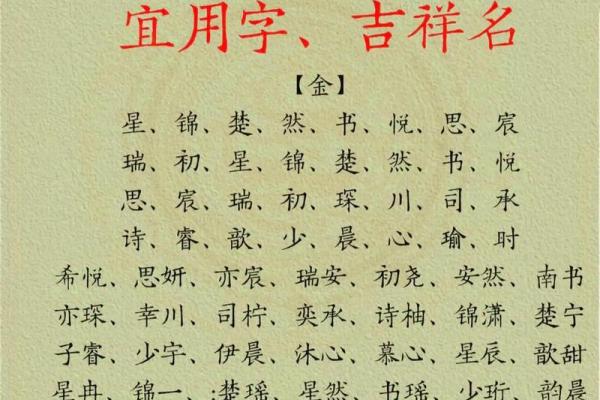 宜用字、吉祥名
【金】
星、锦、楚、然、书、悦、思、宸
瑞、初、星、锦、楚、然、书、悦
思、宸、瑞、初、琛、川、司、承
诗、睿、歆、少、晨、心、瑜、时
希悦、思妍、亦宸、瑞安、初尧、安然、南书
亦琛、幸川、司柠、奕承、诗柚、锦潇、楚宁
子睿、少宇、伊晨、沐心、慕心、星辰、歆甜
星冉、锦一、:楚瑶、星然、书瑶、少珩、韵晨